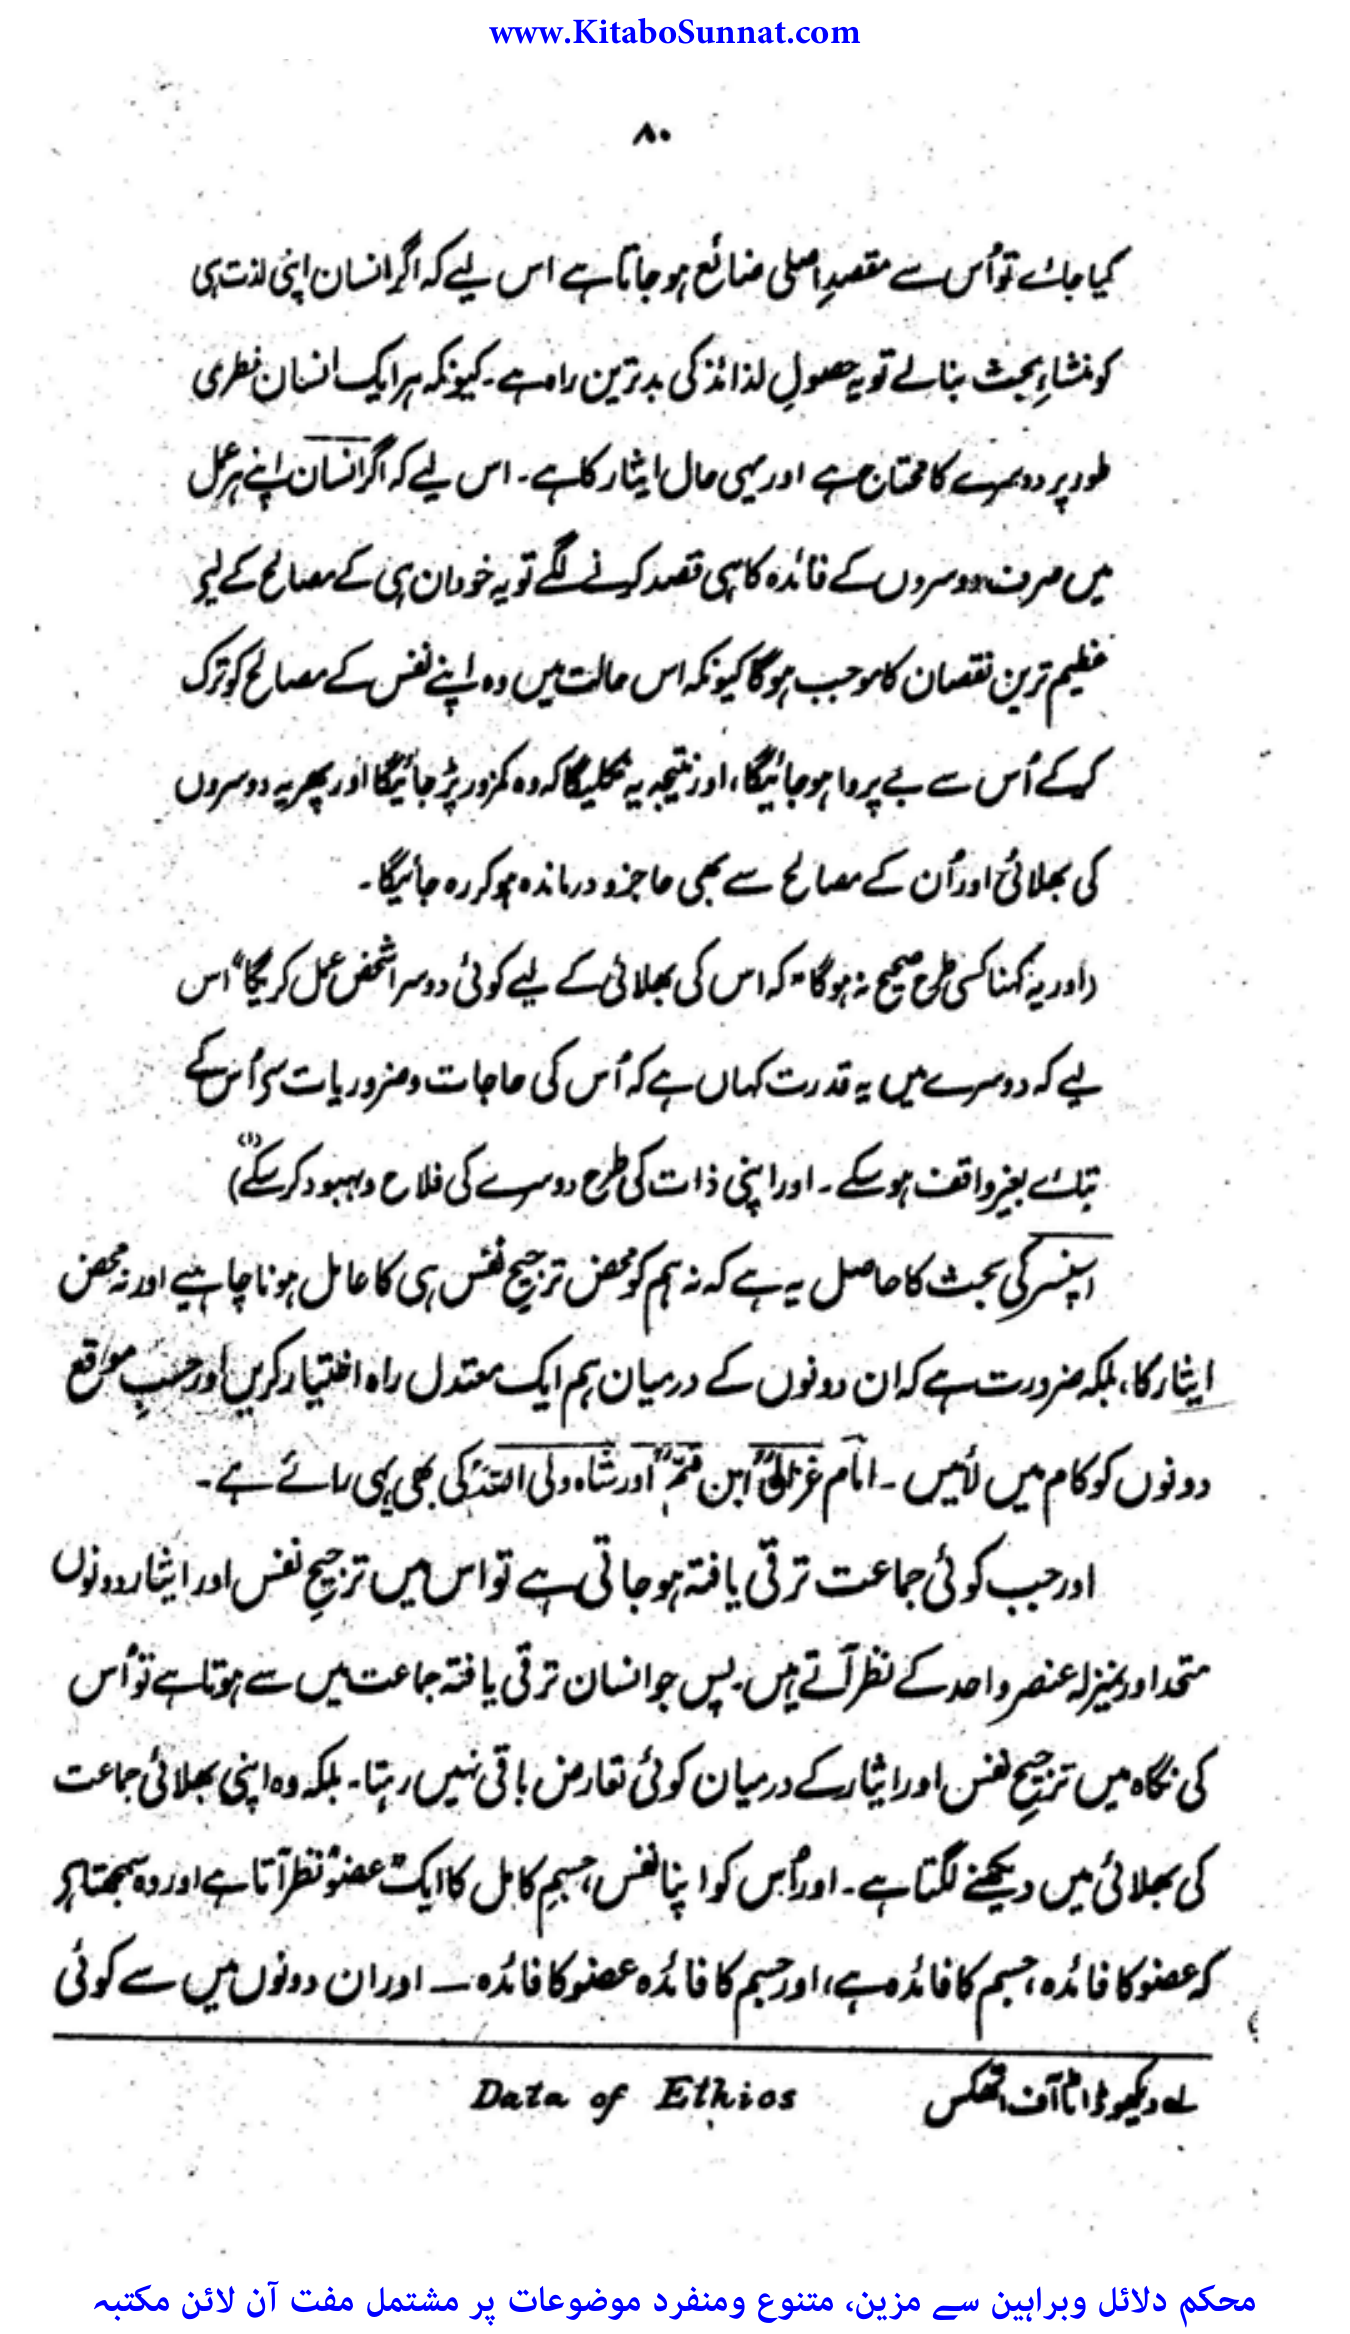 www.KitaboSunnat.com
۸۰
کیا جائے تو اُس سے مقصدِ اصلی ضائع ہو جاتا ہے اس لیے کہ اگر انسان اپنی لذت ہی
کو منشاءِ بحث بنالے تو یہ حصولِ لذائذ کی بدترین راہ ہے۔ کیونکہ ہر ایک انسان فطری
طور پر دوسرے کا محتاج ہے اور یہی حال ایثار کا ہے۔ اس لیے کہ اگر انسان اپنے ہر عمل
میں صرف دوسروں کے فائدہ کا ہی قصد کرنے لگے تو یہ خود ان ہی کے مصالح کے لیے
عظیم ترین نقصان کا موجب ہوگا کیونکہ اس حالت میں وہ اپنے نفس کے مصالح کو ترک
کرکے اُس سے بے پروا ہو جائیگا، اور نتیجہ یہ نکلیگا کہ وہ کمزور پڑ جائیگا اور پھر یہ دوسروں
کی بھلائی اور اُن کے مصالح سے بھی عاجز و درماندہ ہو کر رہ جائیگا۔
(اور یہ کہنا کسی طرح صحیح نہ ہوگا "کہ اس کی بھلائی کے لیے کوئی دوسرا شخص عمل کریگا" اس
لیے کہ دوسرے میں یہ قدرت کہاں ہے کہ اُس کی حاجات و ضروریات سے اُس کے
بتائے بغیر واقف ہو سکے۔ اور اپنی ذات کی طرح دوسرے کی فلاح و بہبود کر سکے) (۱)
اسپنسر کی بحث کا حاصل یہ ہے کہ نہ ہم کو محض ترجیحِ نفس ہی کا عامل ہونا چاہیے اور نہ محض
ایثار کا، بلکہ ضرورت ہے کہ ان دونوں کے درمیان ہم ایک معتدل راہ اختیار کریں اور حسبِ موقع
دونوں کو کام میں لائیں۔ امام غزالیؒ ابن قیمؒ اور شاہ ولی اللہؒ کی بھی یہی رائے ہے۔
اور جب کوئی جماعت ترقی یافتہ ہو جاتی ہے تو اس میں ترجیحِ نفس اور ایثار دونوں
متحد اور بمنزلہ عنصرِ واحد کے نظر آتے ہیں۔ پس جو انسان ترقی یافتہ جماعت میں سے ہوتا ہے تو اُس
کی نگاہ میں ترجیحِ نفس اور ایثار کے درمیان کوئی تعارض باقی نہیں رہتا۔ بلکہ وہ اپنی بھلائی جماعت
کی بھلائی میں دیکھنے لگتا ہے۔ اور اُس کو اپنا نفس، جسمِ کامل کا ایک "عضو" نظر آتا ہے اور وہ سمجھتا ہے
کہ عضو کا فائدہ، جسم کا فائدہ ہے، اور جسم کا فائدہ عضو کا فائدہ — اور ان دونوں میں سے کوئی
لے دیکھو ڈاٹا آف اتھکس Data of Ethios
محکم دلائل وبراہین سے مزین، متنوع ومنفرد موضوعات پر مشتمل مفت آن لائن مکتبہ